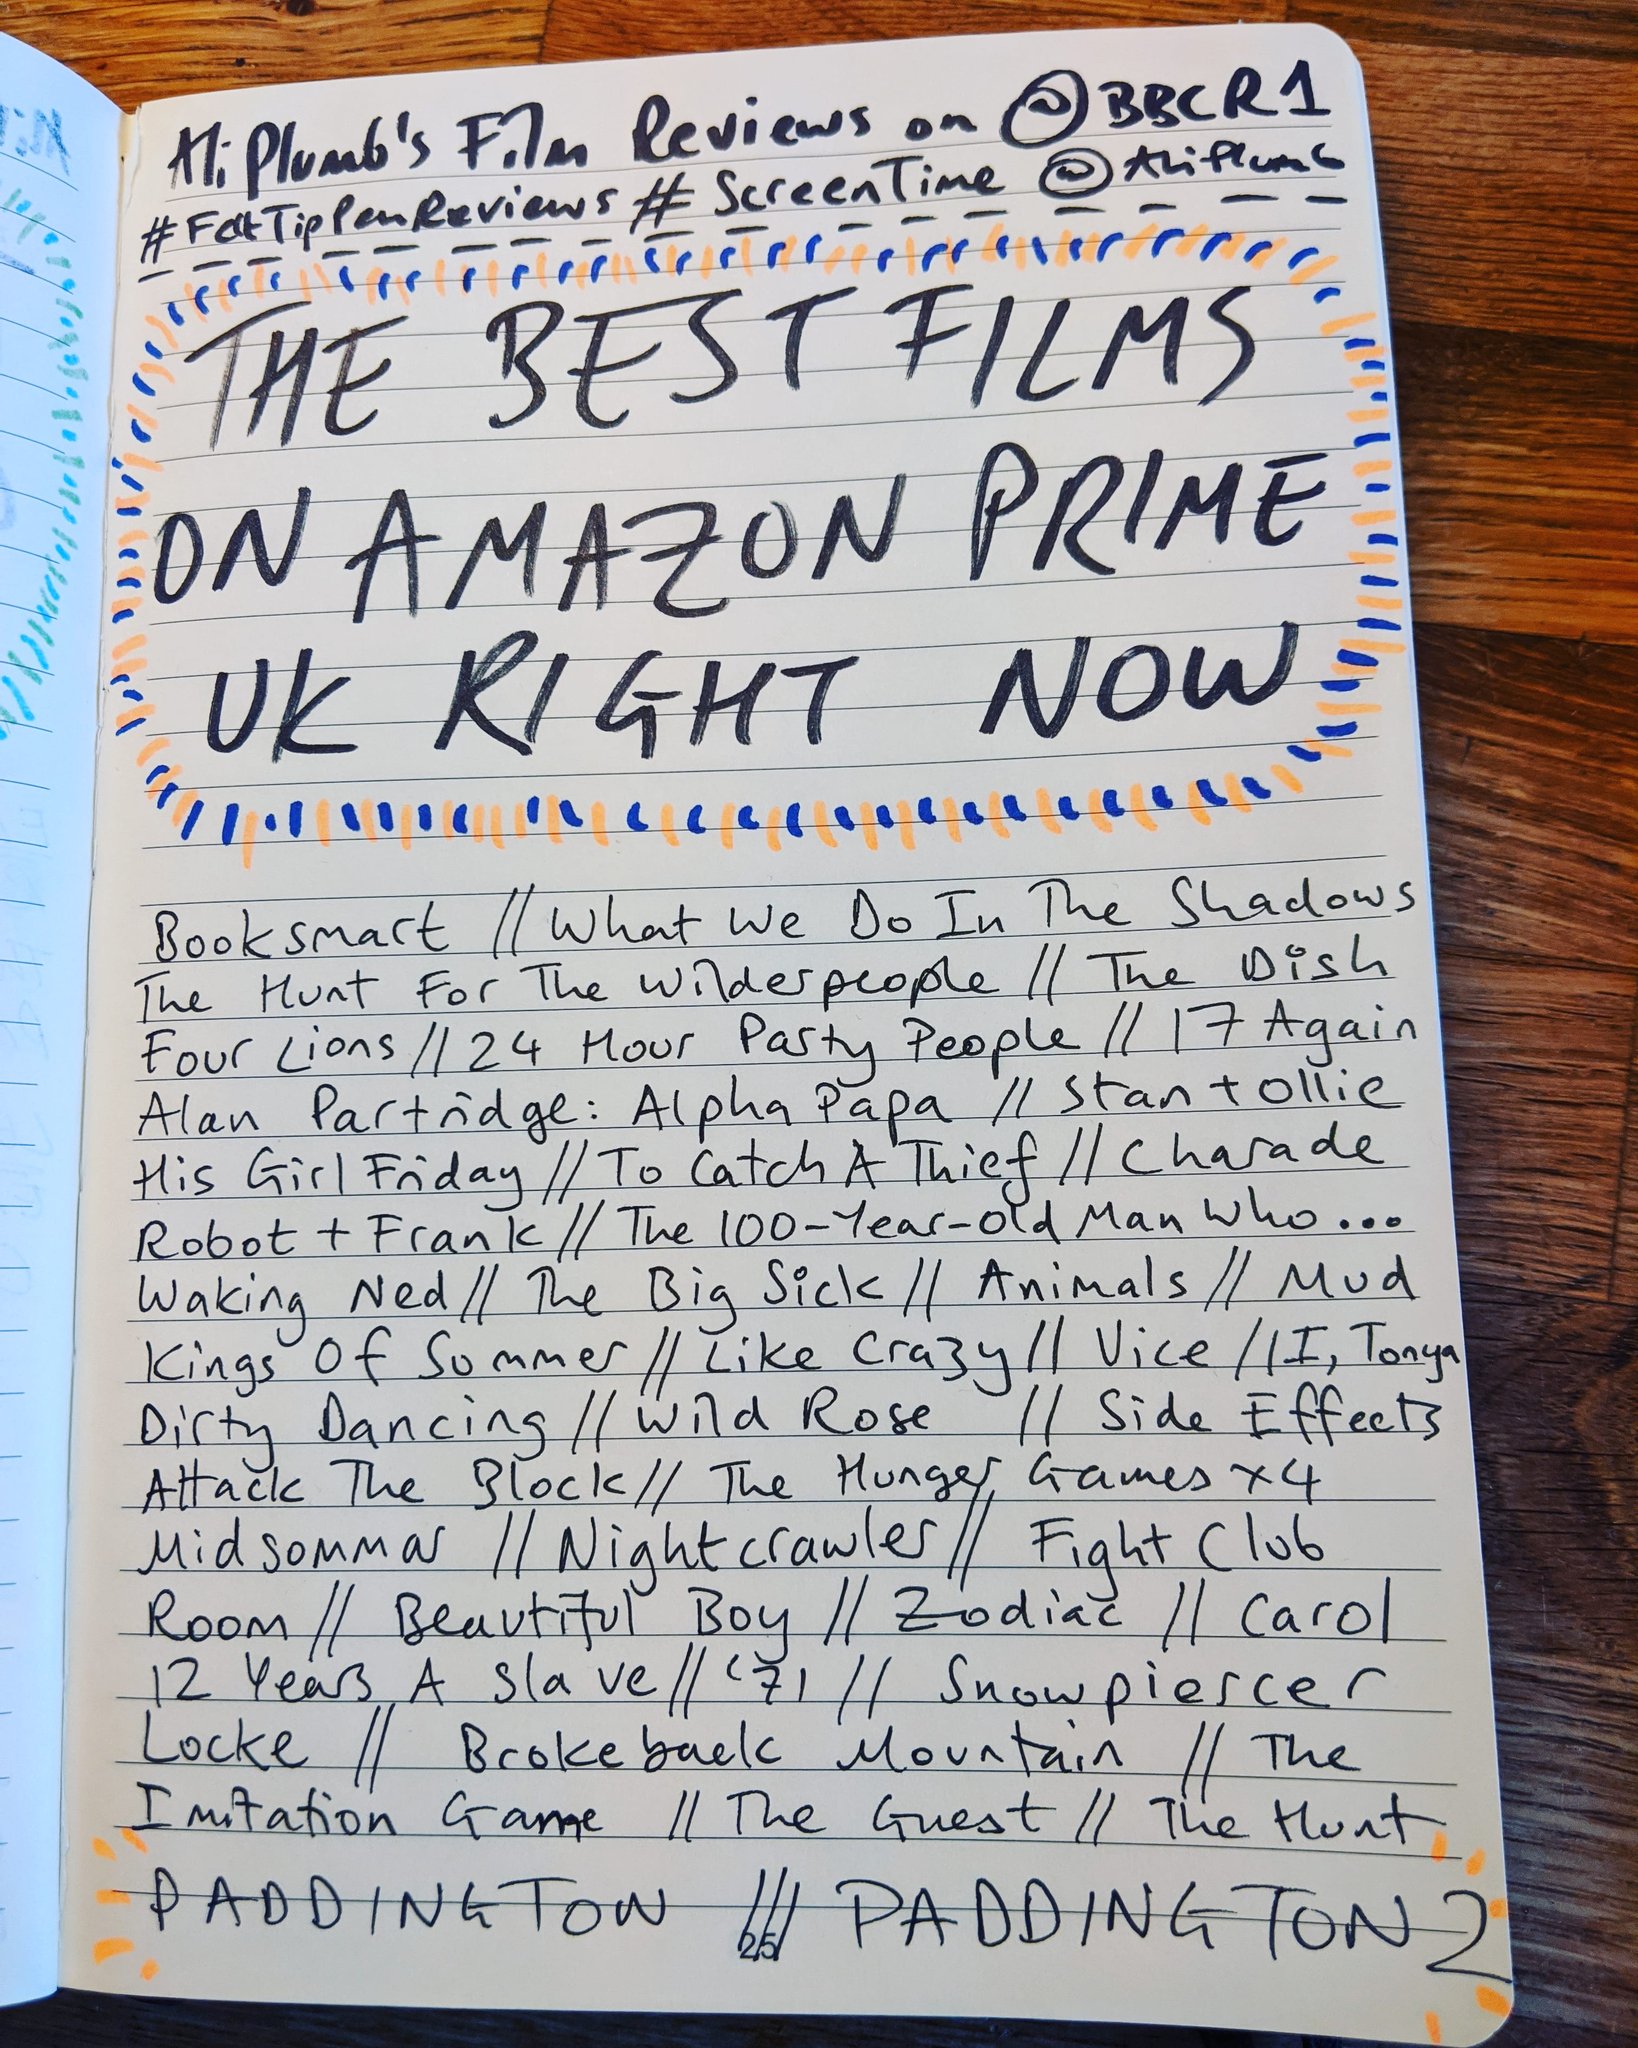 Ali Plumb's Film Reviews on @BBCR1
#FeltTipPenReviews #ScreenTime @AliPlumb
THE BEST FILMS
ON AMAZON PRIME
UK RIGHT NOW
Booksmart // What We Do In The Shadows
The Hunt For The Wilderpeople // The Dish
Four Lions // 24 Hour Party People // 17 Again
Alan Partridge: Alpha Papa // Stan + Ollie
His Girl Friday // To Catch A Thief // Charade
Robot + Frank // The 100-Year-Old Man Who...
Waking Ned // The Big Sick // Animals // Mud
Kings Of Summer // Like Crazy // Vice // I, Tonya
Dirty Dancing // Wild Rose // Side Effects
Attack The Block // The Hunger Games x4
Midsommar // Nightcrawler // Fight Club
Room // Beautiful Boy // Zodiac // Carol
12 Years A Slave // '71 // Snowpiercer
Locke // Brokeback Mountain // The
Imitation Game // The Guest // The Hunt
PADDINGTON /// PADDINGTON 2
25